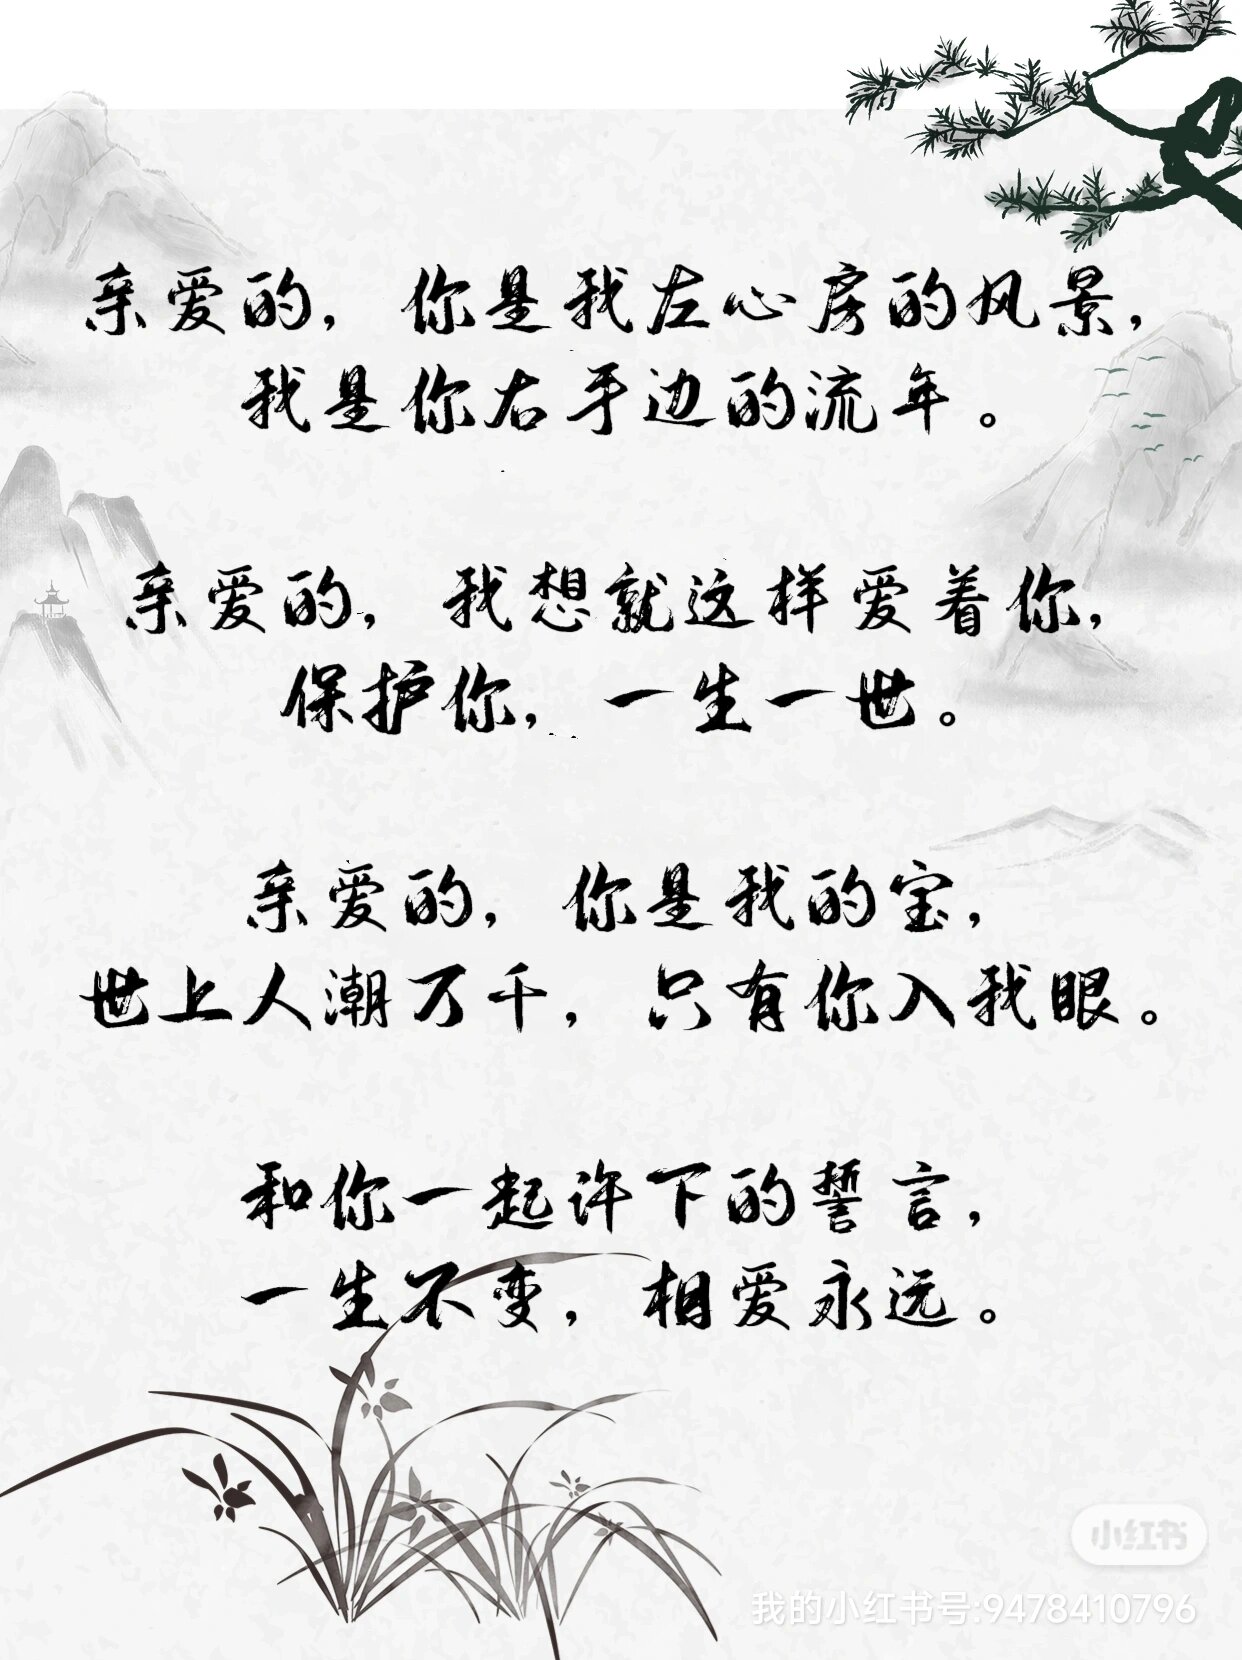 亲爱的，你是我左心房的风景，
我是你右手边的流年。
亲爱的，我想就这样爱着你，
保护你，一生一世。
亲爱的，你是我的宝，
世上人潮万千，只有你入我眼。
和你一起许下的誓言，
一生不变，相爱永远。
小红书
我的小红书号:9478410796